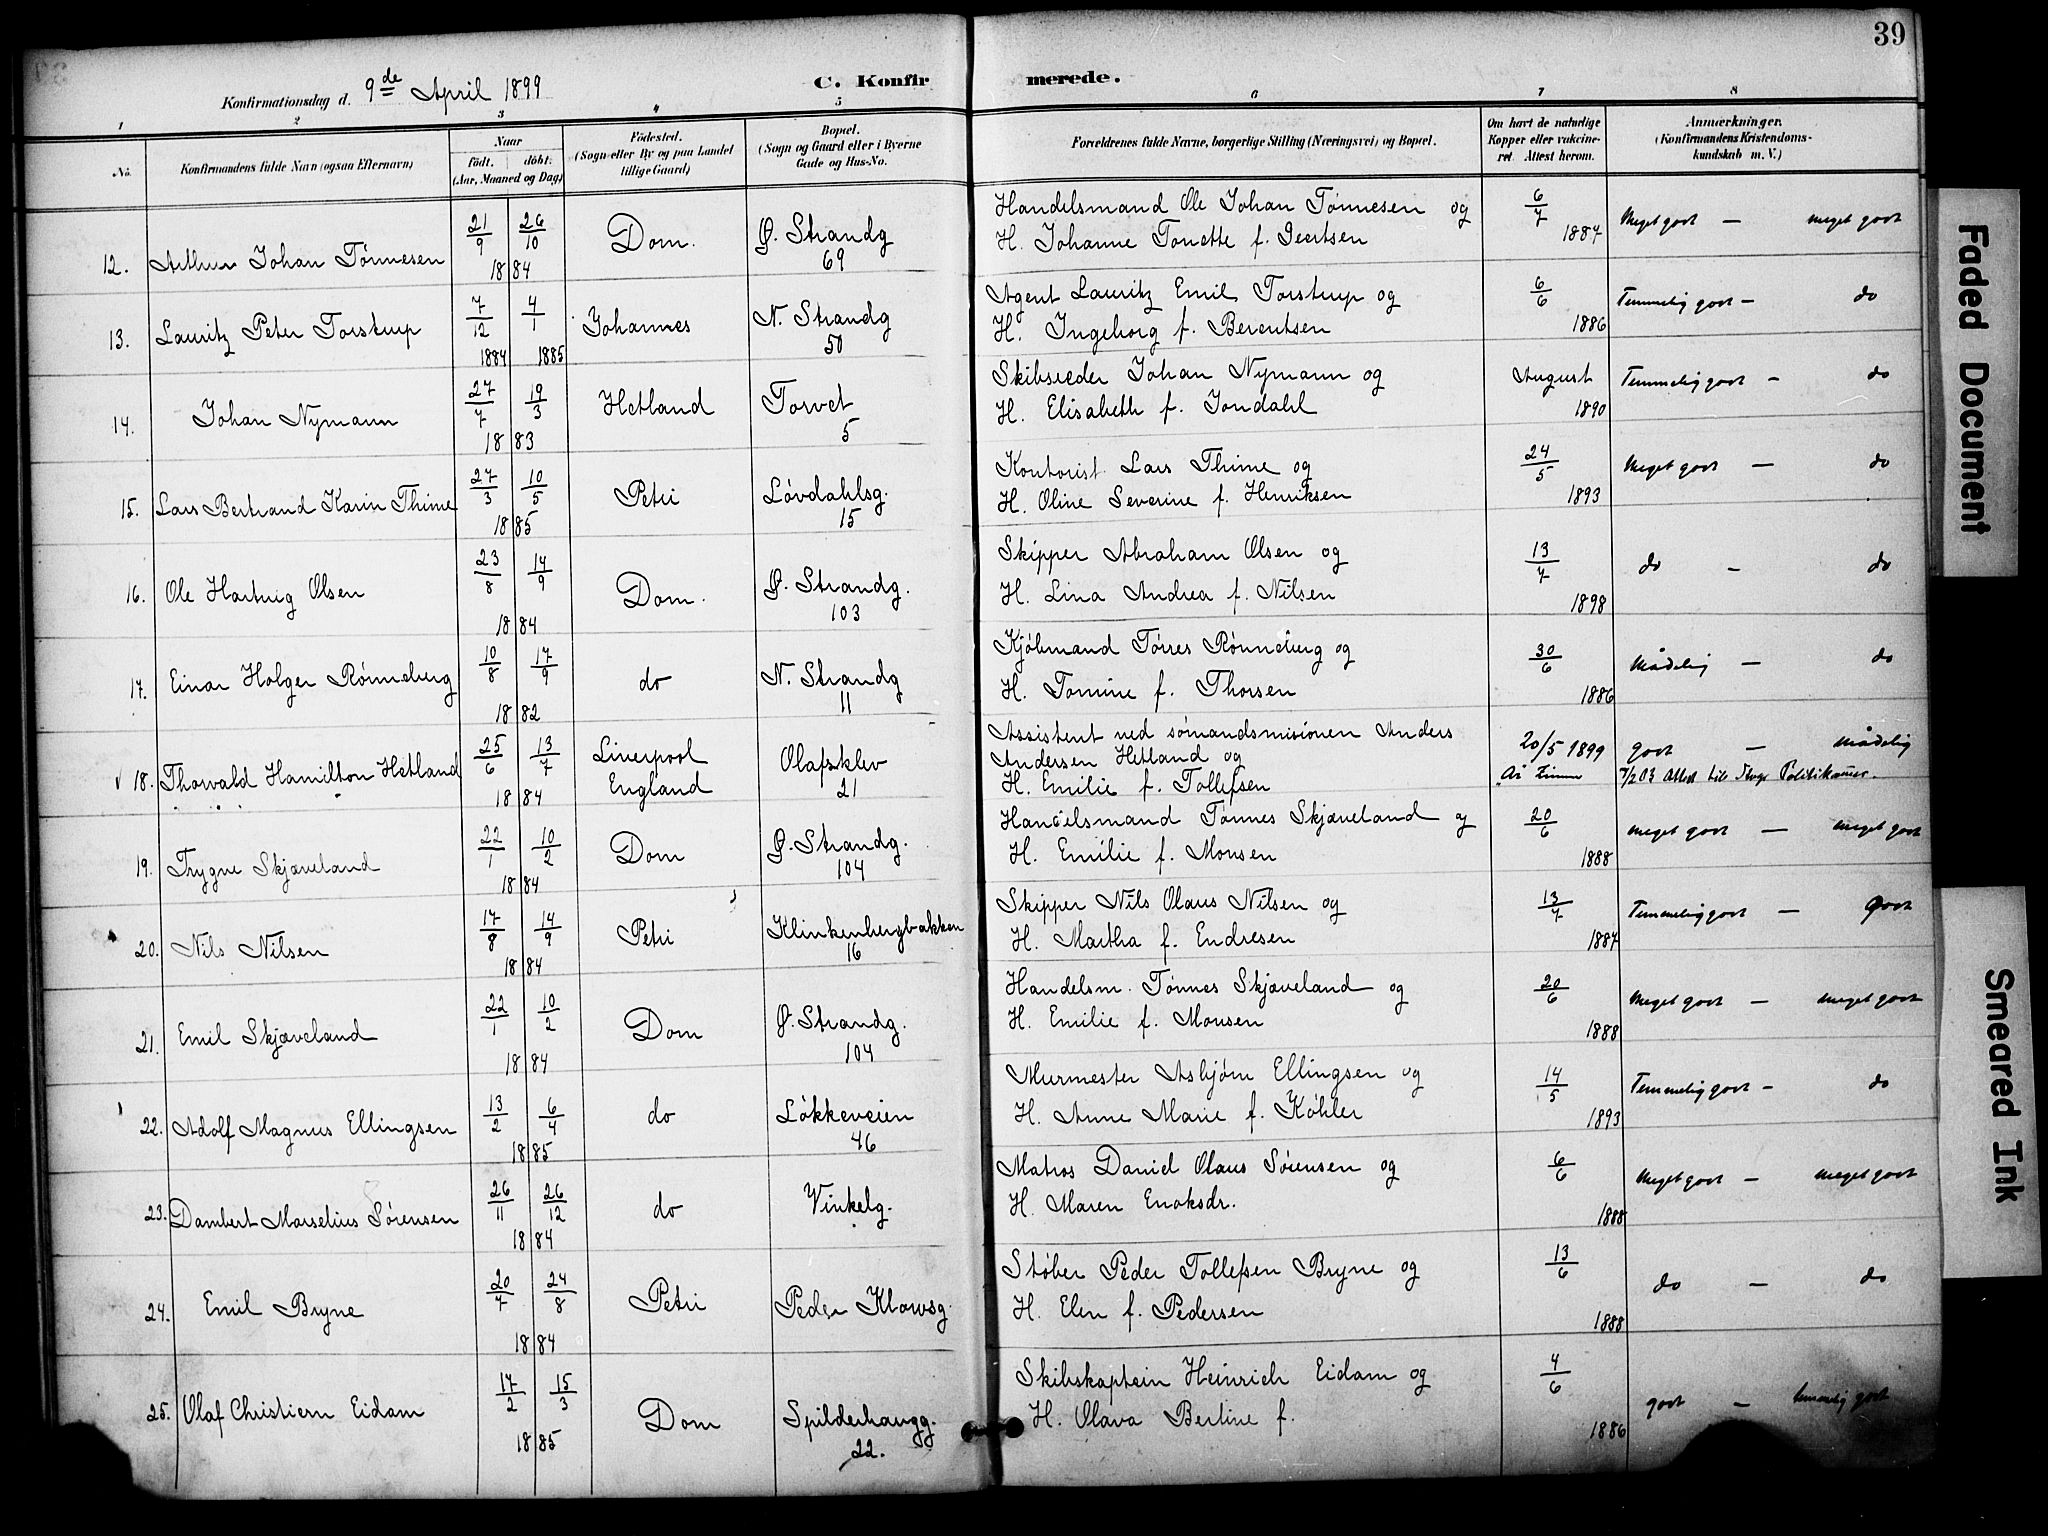 39
Konfirmationsdag d. 9de April 1899
C. Konfirmerede.
1 2 3 4 5 6 7 8
No. Konfirmandens fulde Navn (ogsaa Efternavn)
Naar
født. døbt.
(Aar, Maaned og Dag)
Fødested.
(Sogn eller By og paa Landet tillige Gaard)
Bopæl.
(Sogn og Gaard eller i Byerne Gade og Hus-No.
Forældrenes fulde Navne, borgerlige Stilling (Næringsvei) og Bopæl.
Om havt de naturlige Kopper eller vakcineret. Attest herom.
Anmærkninger.
(Konfirmandens Kristendomskundskab m. V.)
12. Arthur Johan Tønnesen 21/9 26/10 1884 Dom. Ø. Strandg 69
Handelsmand Ole Johan Tønnesen og
H. Johanne Tonette f. Geertsen 6/7 1887 Meget godt — meget godt
13. Lauritz Peter Torstrup 7/12 1884 4/1 1885 Johannes N. Strandg 50
Agent Lauritz Emil Torstrup og
H. Ingeborg f. Berentsen 6/6 1886 Temmelig godt — do
14. Johan Nymann 27/7 19/3 1883 Hetland Torvet 5
Skibsreder Johan Nymann og
H. Elisabeth f. Jondahl August 1890 Temmelig godt — do
15. Lars Bertrand Karin Thime 27/3 10/5 1885 Petri Løvdahlsg. 15
Kontorist Lars Thime og
H. Oline Severine f. Henriksen 24/5 1893 Meget godt — do
16. Ole Hartvig Olsen 23/8 14/9 1884 Dom. Ø. Strandg. 103
Skipper Abraham Olsen og
H. Lina Andrea f. Nilsen 13/7 1898 do — do
17. Einar Holger Rønneberg 10/8 17/9 1882 do N. Strandg 11
Kjøbmand Tørres Rønneberg og
H. Tomine f. Thorsen 30/6 1886 Mådelig — do
18. Thorvald Hamilton Hetland 25/6 13/7 1884 Liverpool England Olafsklev 21
Assistent ved sømandsmisionen Anders
Andersen Hetland og
H. Emilie f. Tollefsen 20/5 1899 godt — Mådelig
7/2 03 Attest Politikamer.
19. Trygve Skjæveland 22/1 10/2 1884 Dom Ø. Strandg. 104
Handelsmand Tønnes Skjæveland og
H. Emilie f. Monsen 20/6 1888 meget godt — meget godt
20. Nils Nilsen 17/8 14/9 1884 Petri Klinkenbergbakken 16
Skipper Nils Olaus Nilsen og
H. Martha f. Endresen 13/7 1887 Temmelig godt — godt
21. Emil Skjæveland 22/1 10/2 1884 Dom Ø. Strandg. 104
Handelsm. Tønnes Skjæveland og
H. Emilie f. Monsen 20/6 1888 Meget godt — meget godt
22. Adolf Magnus Ellingsen 13/2 6/4 1885 do Løkkeveien 46
Murmester Asbjørn Ellingsen og
H. Anne Marie f. Køhler 14/5 1893 Temmelig godt — do
23. Dambert Marselius Sørensen 26/11 26/12 1884 do Vinkelg.
Matros Daniel Olaus Sørensen og
H. Maren Enoksdr. 6/6 1888 Meget godt — meget godt
24. Emil Bryne 20/7 24/8 1884 Petri Peder Klowsg.
Støber Peder Tollefsen Bryne og
H. Elen f. Pedersen 13/6 1888 do — do
25. Olaf Christiern Eidam 17/2 15/3 1885 Dom Spilderhaugg. 22.
Skibskaptein Heinrich Eidam og
H. Olava Bertine f. 4/6 1886 godt — temmelig godt
Faded Document
Smeared Ink